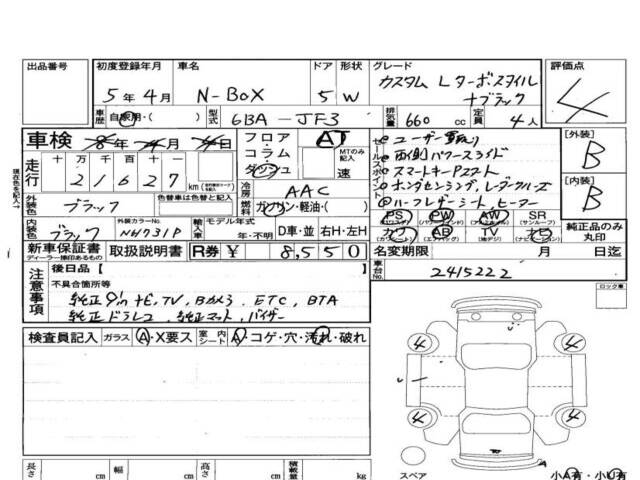 出品番号 初度登録年月 車名 ドア 形状 グレード 評価点
5年 4月 N-BOX 5 W カスタム Lターボスタイル +ブラック 4
車歴 自家用・( ) 型式 6BA-JF3 排気量 660 cc 定員 4人
車検 年 月 日 フロア・コラム・ダッシュ AT MTのみ記入 速
セールスポイント
ユーザー買取り
両側パワースライド
スマートキーPスタート
ホンダセンシング、レーダークルーズ
ハーフレザーシート、ヒーター
[外装] B
[内装] B
走行 十 万 千 百 十 一
2 1 6 2 7 km
冷房 AAC
燃料 ガソリン・軽油・( )
外装色 ブラック 色替車は色替と記入
内装色 ブラック 外装カラーNo. NH731P 輸入車 モデル年式 年・不明 D車・並 右H・左H
PS PW AW SR
カワ AB TV ナビ
純正品のみ丸印
新車保証書 取扱説明書 R券 ¥ 8,550
ディーラー捺印あるもの
名変期限 月 日迄
車台No. 2415222
注意事項 後日品【 】
不具合箇所等
純正9inナビ,TV,Bカメラ,ETC,BTA
純正ドラレコ,純正マット,バイザー
ロック車
検査員記入 ガラス A・X要ス 室内シート A・コゲ・穴・汚れ・破れ
4 4
4 4
スペア
小A有・小U有
長さ cm 幅 cm 高さ cm 積載量 kg